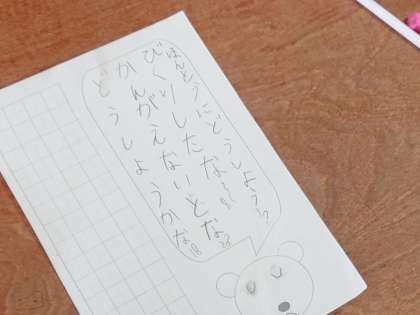 ほんとうにどうしよう?
びくりしたな~!!
かんがえないとな!!
どうしようかな!!